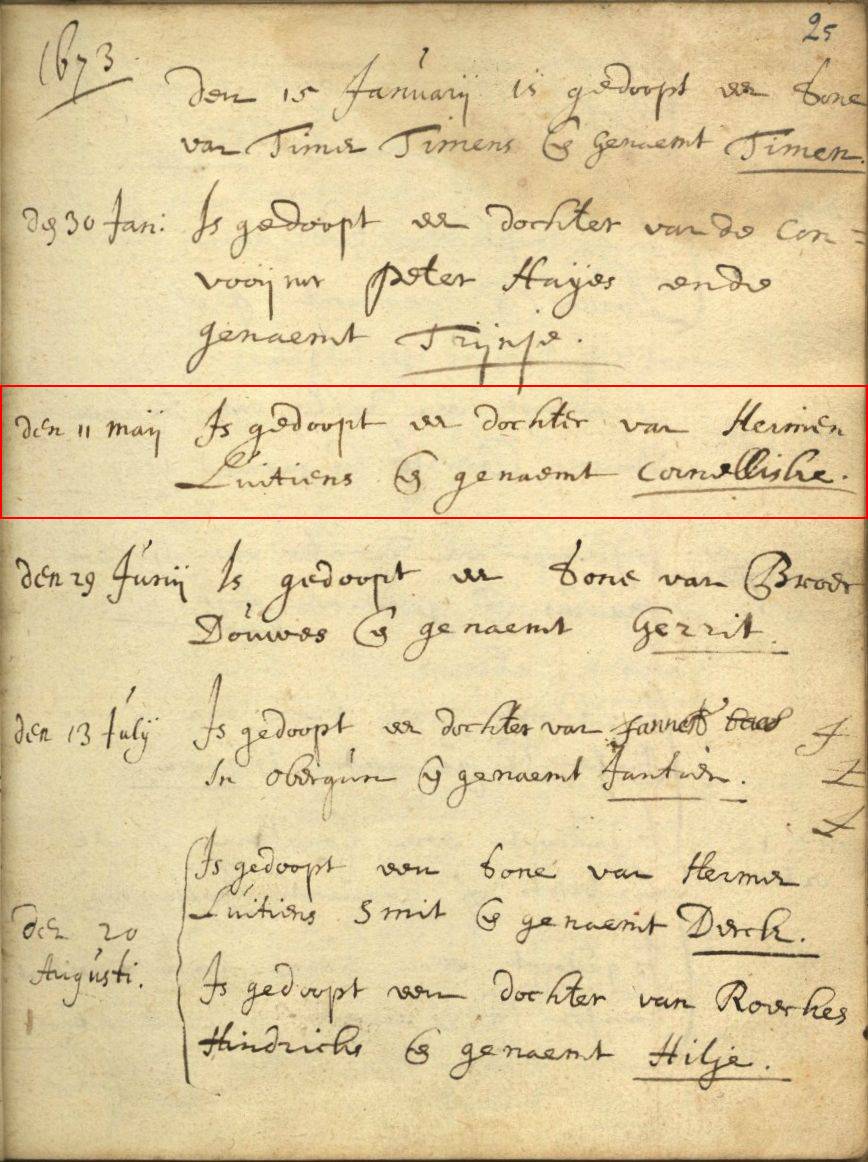 25
1673
den 15 Januarij is gedoopt een Sone
van Timen Timens & genaemt Timen.
den 30 Jan: Is gedoopt een dochter van de Con=
vooijmr peter Hayes ende
genaemt Trijnje.
den 11 maij Is gedoopt een dochter van Hermen
Luitiens & genaemt Cornelliske.
den 29 Junij Is gedoopt een Sone van Broer
Douwes & genaemt Gerrit.
den 13 Julij Is gedoopt een dochter van Jannes
In obergum & genaemt Jantien.
Is gedoopt een Sone van Hermen
Luitiens Smit & genaemt Derck.
den 20
Augusti.
Is gedoopt een dochter van Roeckes
Hindricks & genaemt Hilje.